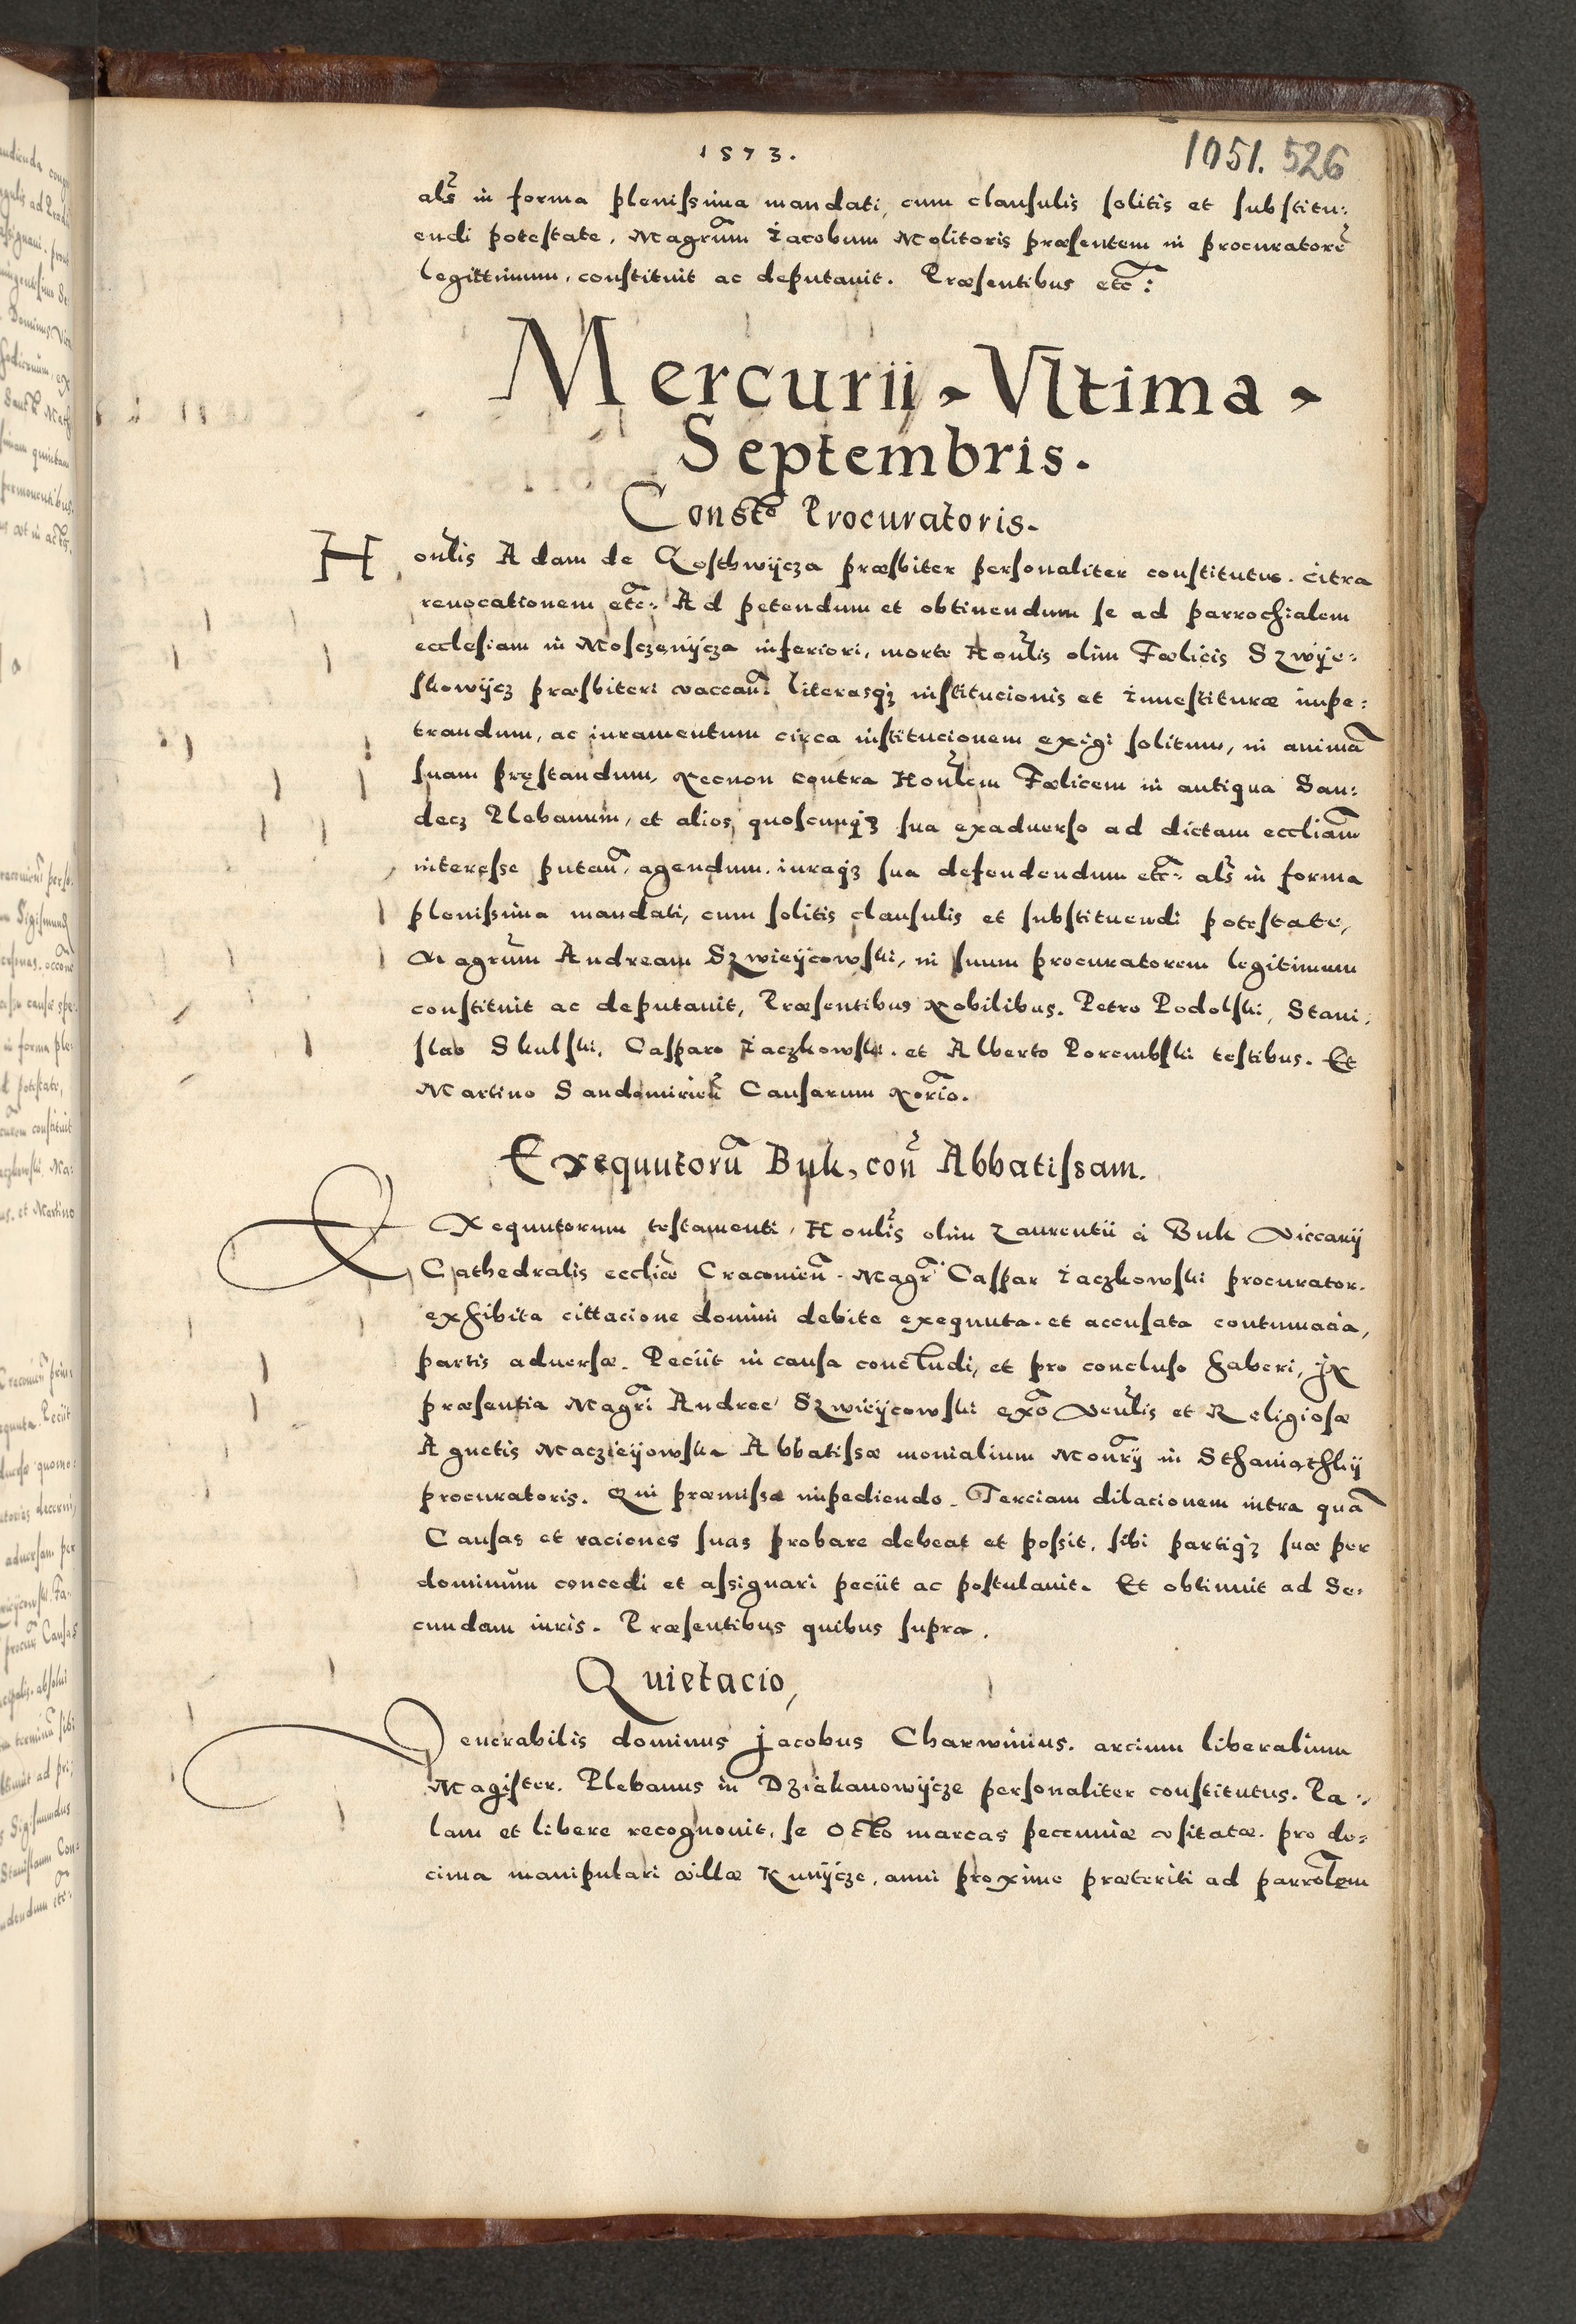 1573.
1051. 526
als in forma plenissima mandati, cum clausulis solitis et substitu:
endi potestate, Magrum Iacobum Molitoris præsentem in procuratore
legittimum, constituit ac deputauit. Præsentibus etc:
Mercurii Vltima
Septembris.
Consto Procuratoris.
Honlis Adam de Gosthwijcza præsbiter personaliter constitutus. citra
reuocationem etc: Ad petendum et obtinendum se ad parrochialem
ecclesiam in Mosczenijcza inferiori, morte Honlis olim Fœlicis Szwije:
skowijcz præsbiteri vaccan. literasqz institucionis et Inuestituræ impe:
trandum, ac iuramentum circa institucionem exigi solitum, in anima
suam pręstandum, Necnon contra Honlem Fœlicem in antiqua San:
decz Plebanum, et alios quoscunqz sua exaduerso ad dictam eccliam
interesse putan, agendum. iuraqz sua defendendum etc: als in forma
plenissima mandati, cum solitis clausulis et substituendi potestate,
Magrum Andream Szwieijcowski, in suum procuratorem legitimum
constituit ac deputauit, Præsentibus Nobilibus. Petro Podolski, Stani:
slao Skulski, Casparo Iaczkowski. et Alberto Porembski testibus. Et
Martino Sandomirien Causarum Norio.
Exequutoru Buk, con Abbatissam.
Exequutorum testamenti, Honlis olim Laurentii à Buk Viccarij
Cathedralis eccliæ Cracouien. Magr Caspar Iaczkowski procurator.
exhibita cittacione domini debite exequuta. et accusata contumacia,
partis aduersæ. Peciit in causa concludi, et pro concluso haberi, In
præsentia Magri Andree Szwieijcowski exo Venlis et Religiosæ
Agnetis Maczieijowska Abbatissæ monialium Monrij in Sthaniathkij
procuratoris. Qui præmissa impediendo. Terciam dilacionem intra qua
Causas et raciones suas probare debeat et possit, sibi partiqz suæ per
dominum concedi et assignari peciit ac postulauit. Et obtinuit ad Se:
cundam iuris. Præsentibus quibus supra.
Quietacio,
Venerabilis dominus Jacobus Charwinius. arcium liberalium
Magister. Plebanus in Dziekanowijcze personaliter constitutus. Pa:
lam et libere recognouit, se octo marcas pecuniæ vsitatæ. pro de:
cima manipulari villæ Kunijcze, anni proxime præteriti ad parrolem